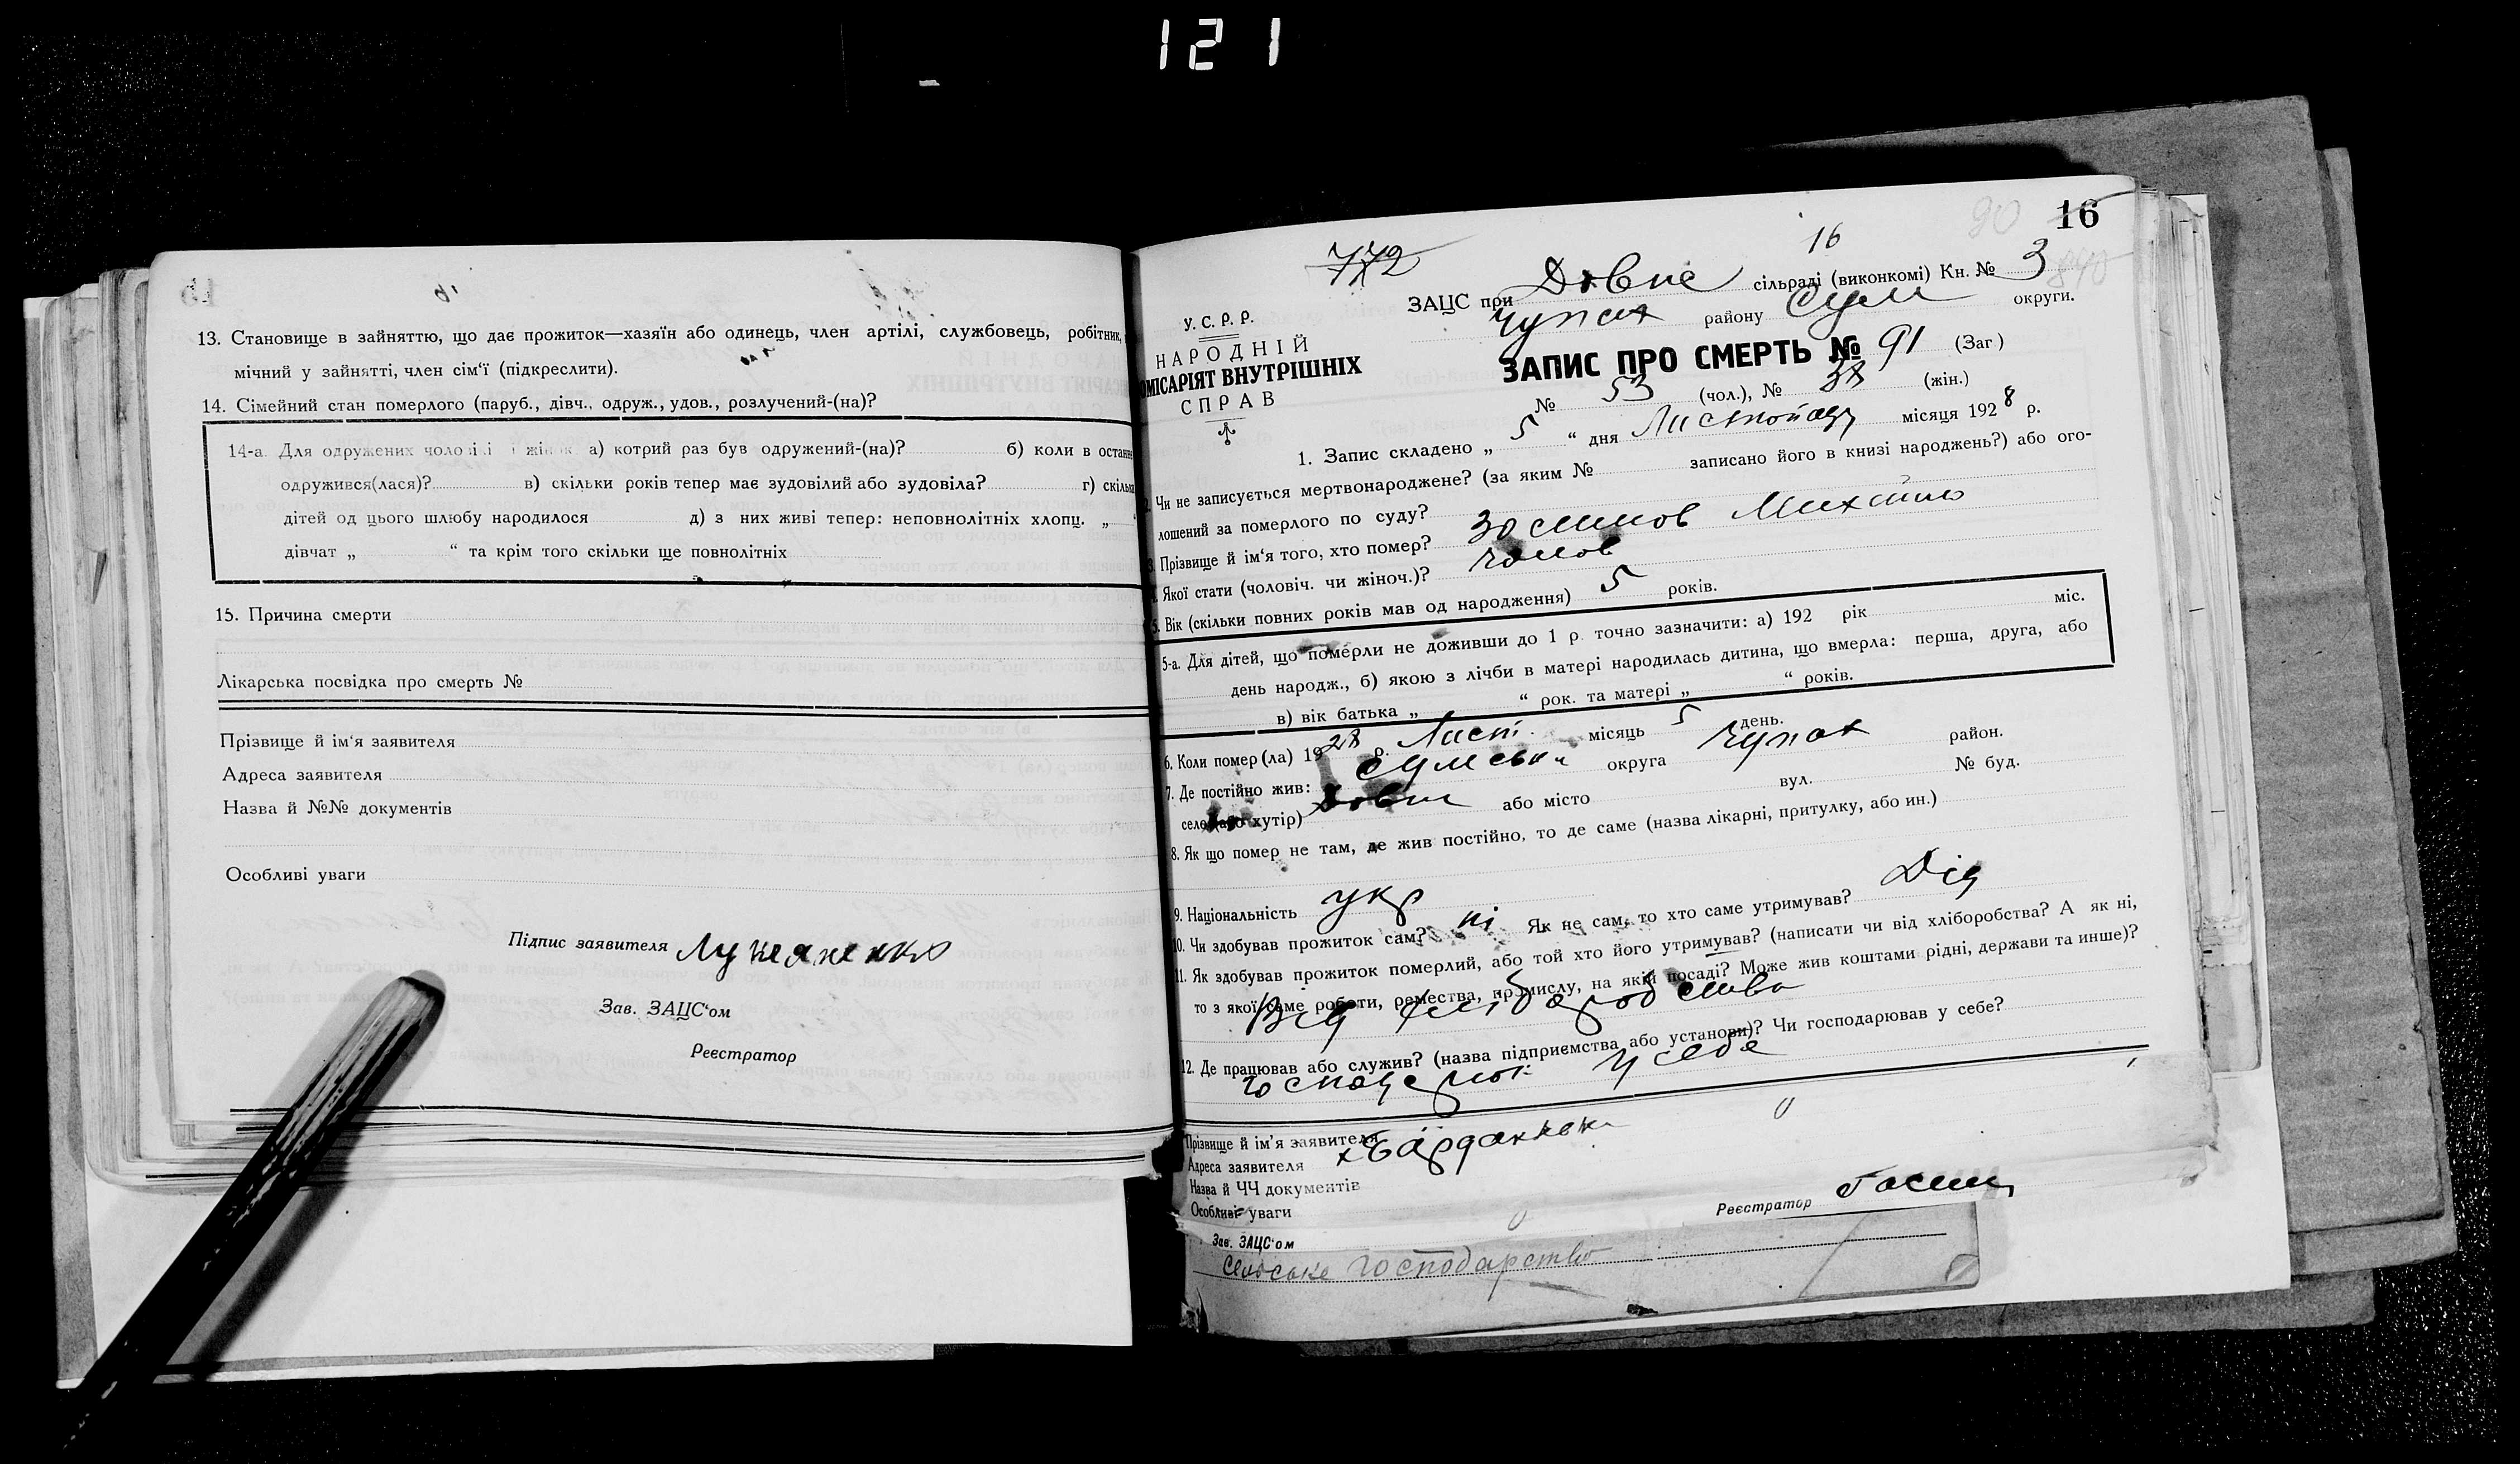 121
13. Становище в зайняттю, що дає прожиток—хазяїн або одинець, член артілі, службовець, робітник,
мічний у зайнятті, член сім'ї (підкреслити).
14. Сімейний стан померлого (паруб., дівч., одруж., удов., розлучений-(на)?
14-а. Для одружених чоловіків і жінок а) котрий раз був одружений-(на)? б) коли в останн
одружився(лася)? в) скільки років тепер має зудовілий або зудовіла? г) скільк
дітей од цього шлюбу народилося д) з них живі тепер: неповнолітніх хлопц. „
дівчат „ “ та крім того скільки ще повнолітніх
15. Причина смерти
Лікарська посвідка про смерть №
Прізвище й ім'я заявителя
Адреса заявителя
Назва й №№ документів
Особливі уваги
Підпис заявителя Лукяненко
Зав. ЗАЦС'ом
Реєстратор
90 16
772 16
ЗАЦС при сільраді (виконкомі) Кн. № 3
Чупах району Сум округи.
У. С. Р. Р.
НАРОДНІЙ
ОМІСАРІЯТ ВНУТРІШНІХ
СПРАВ
ЗАПИС ПРО СМЕРТЬ № 91 (Заг.)
№ 53 (чол.), № 38 (жін.)
1. Запис складено „ 5 “ дня Листопаду місяця 1928 р.
2. Чи не записується мертвонароджене? (за яким № записано його в книзі народжень?) або ого-
лошений за померлого по суду?
3. Прізвище й ім'я того, хто помер? Зосимов Михайло
4. Якої стати (чоловіч. чи жіноч.)? чолов
5. Вік (скільки повних років мав од народження) 5 років.
5-а. Для дітей, що померли не доживши до 1 р. точно зазначити: а) 192 рік міс.
день народж., б) якою з лічби в матері народилась дитина, що вмерла: перша, друга, або
в) вік батька „ “ рок. та матері „ “ років.
6. Коли помер(ла) 1928 р. Лист. місяць 5 день.
7. Де постійно жив: Сумськи округа Чупах район.
село (або хутір) або місто вул. № буд.
8. Як що помер не там, де жив постійно, то де саме (назва лікарні, притулку, або ин.)
9. Національність укр
10. Чи здобував прожиток сам? ні Як не сам, то хто саме утримував? Дід
11. Як здобував прожиток померлий, або той хто його утримував? (написати чи від хліборобства? А як ні,
то з якої саме роботи, ремества, промислу, на якій посаді? Може жив коштами рідні, держави та инше)?
Від хліборобства
12. Де працював або служив? (назва підприємства або установи)? Чи господарював у себе?
у себе
Прізвище й ім'я заявителя
Адреса заявителя
Назва й ЧЧ документів
Особливі уваги
Реєстратор
Зав. ЗАЦС'ом
Сільське господарство